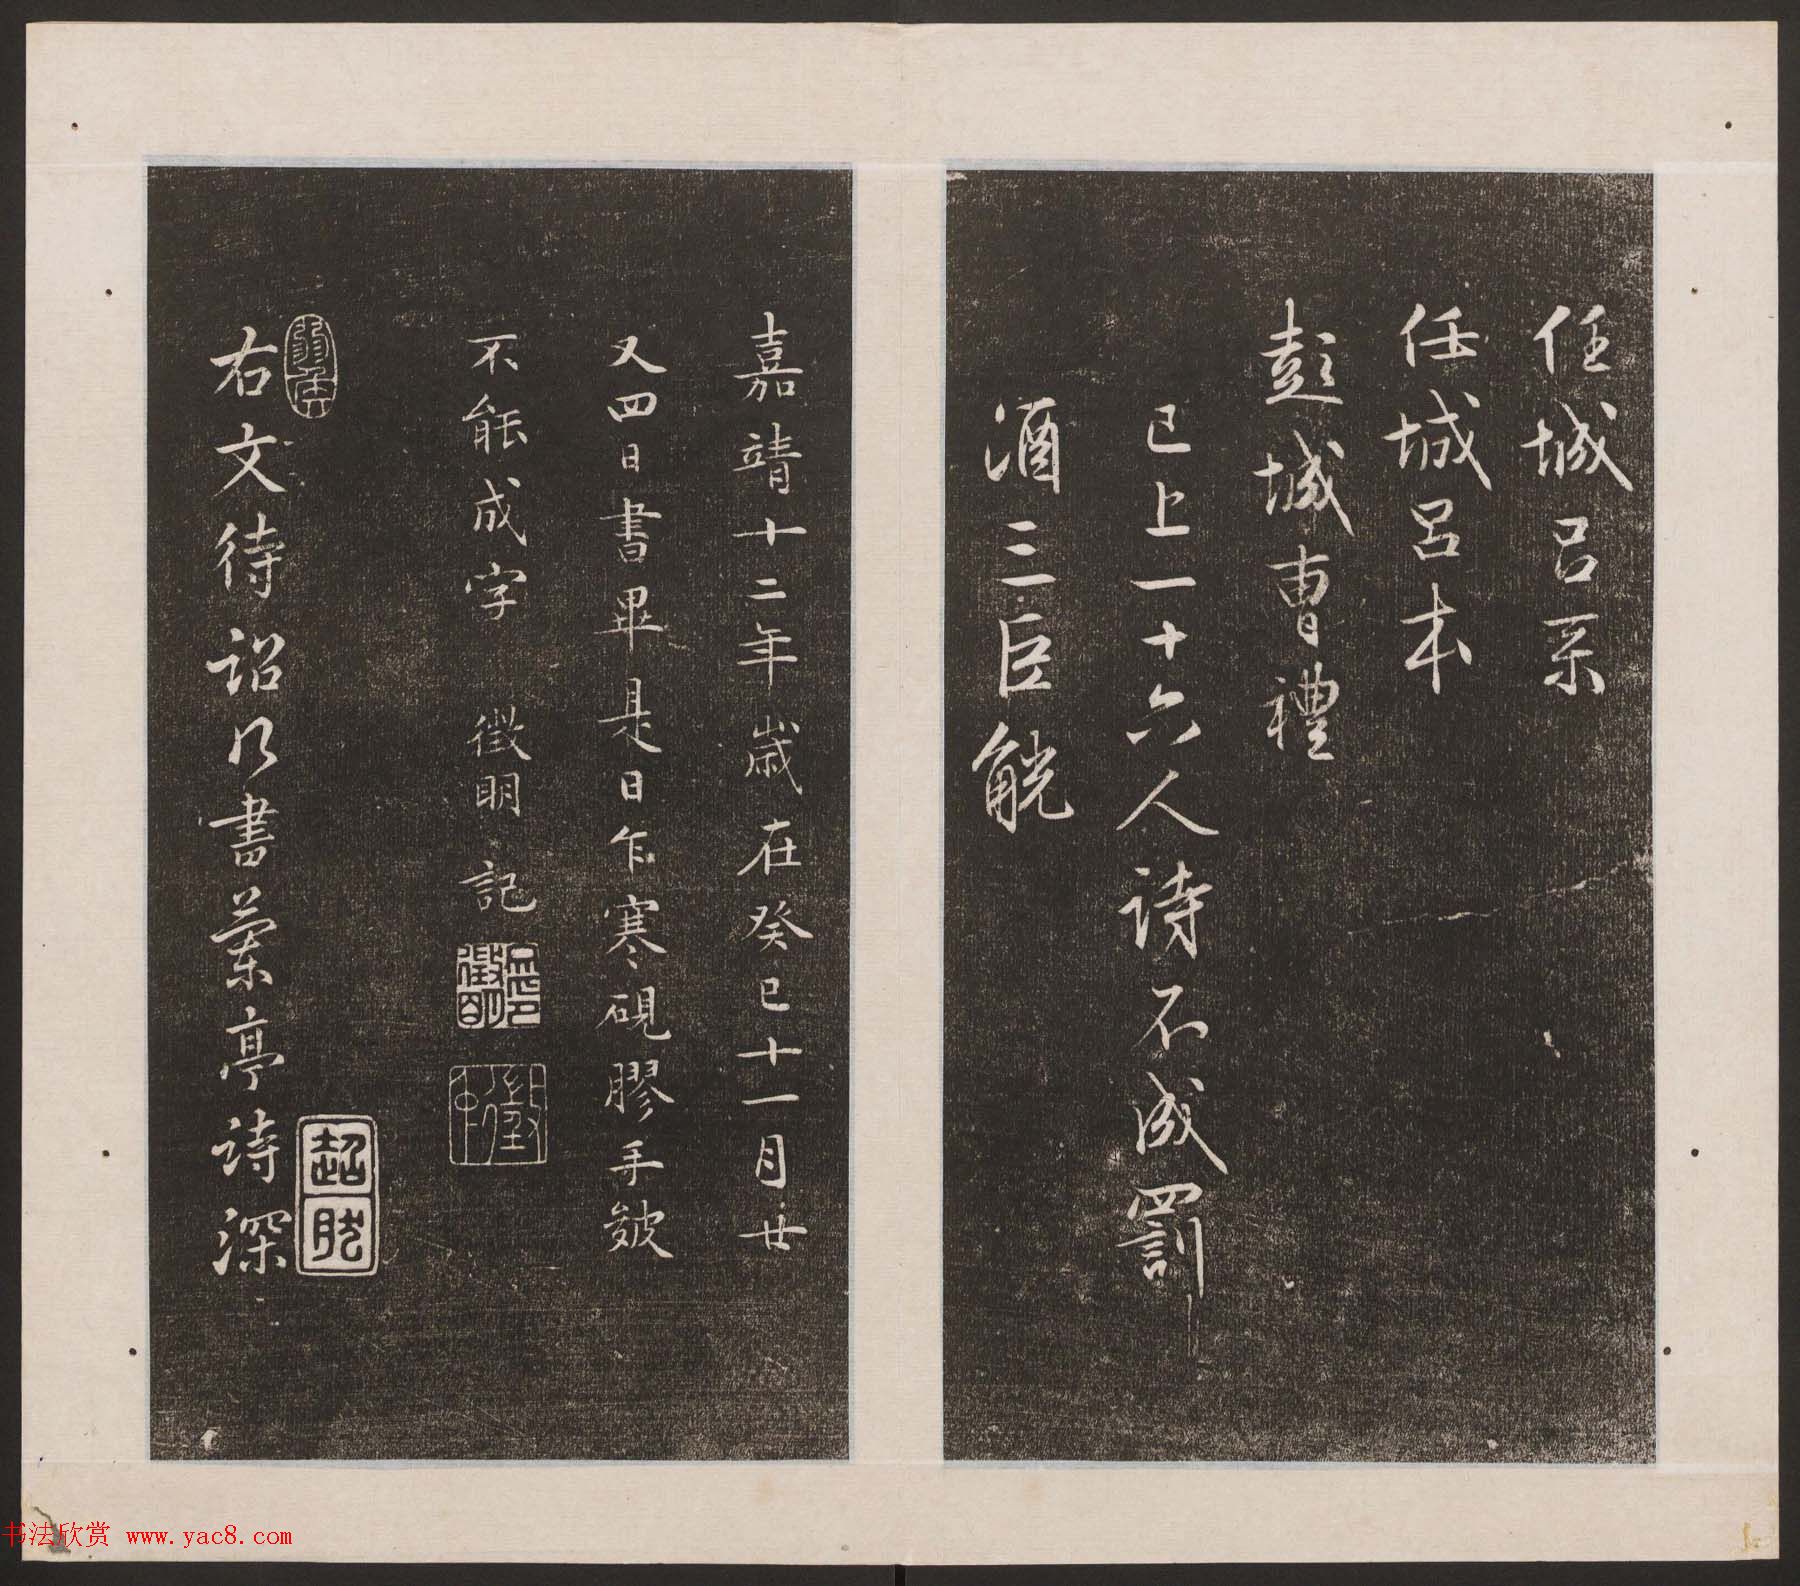 任城吕系
任城呂本
彭城曹禮
已上一十六人詩不成罰
酒三巨觥
嘉靖十二年歲在癸巳十一月廿
又四日書畢是日乍寒硯膠手皴
不能成字 徵明記
徵明印
停雲
右文待詔所書蘭亭詩深
書法欣赏 www.yac8.com